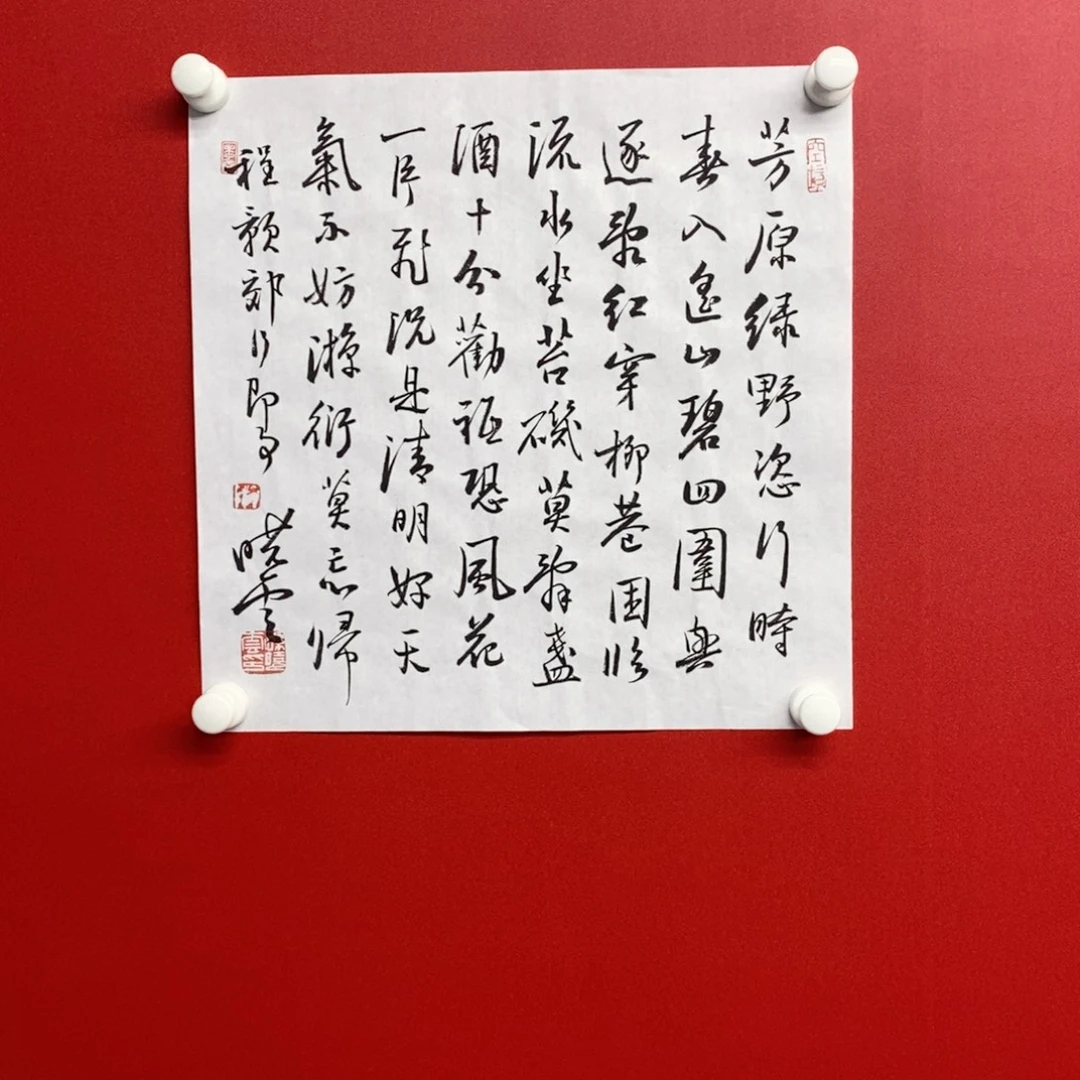 芳原绿野恣行時
春入遥山碧四圍興
逐亂紅穿柳巷困臨
流水坐苔磯莫辭盞
酒十分勸秖恐風花
一片飛況是清明好天
氣不妨游衍莫忘歸
程顥郊行即事
曉雲